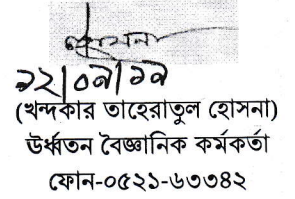 (খন্দকার তাহেরাতুল হোসনা)
উর্ধ্বতন বৈজ্ঞানিক কর্মকর্তা
ফোন-০৫২১-৬৩৩৪২